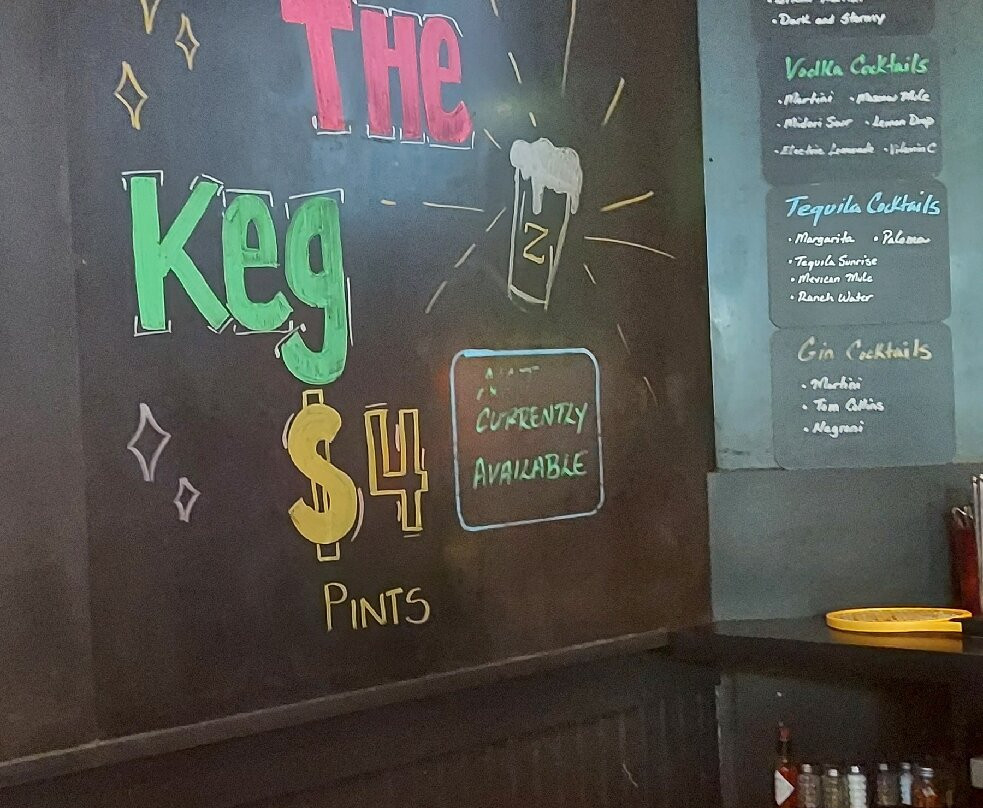 The
Keg
N
$4
NOT
CURRENTLY
AVAILABLE
PINTS
• Dark and Stormy
Vodka Cocktails
• Martini • Moscow Mule
• Midori Sour • Lemon Drop
• Electric Lemonade • Vitamin C
Tequila Cocktails
• Margarita • Paloma
• Tequila Sunrise
• Mexican Mule
• Ranch Water
Gin Cocktails
• Martini
• Tom Collins
• Negroni